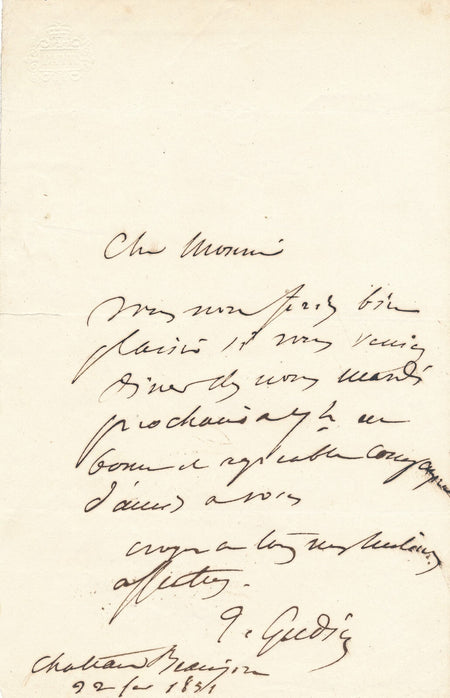 Cher Monsieur
vous nous ferez bien
plaisir si vous veniez
diner chez nous mardi
prochain a 7 h en
bonne et agréable compagnie
d'amis a vous
croyez a tous mes sentimens
affectueux.
Gudin
Chateau Beaujon
22 1851